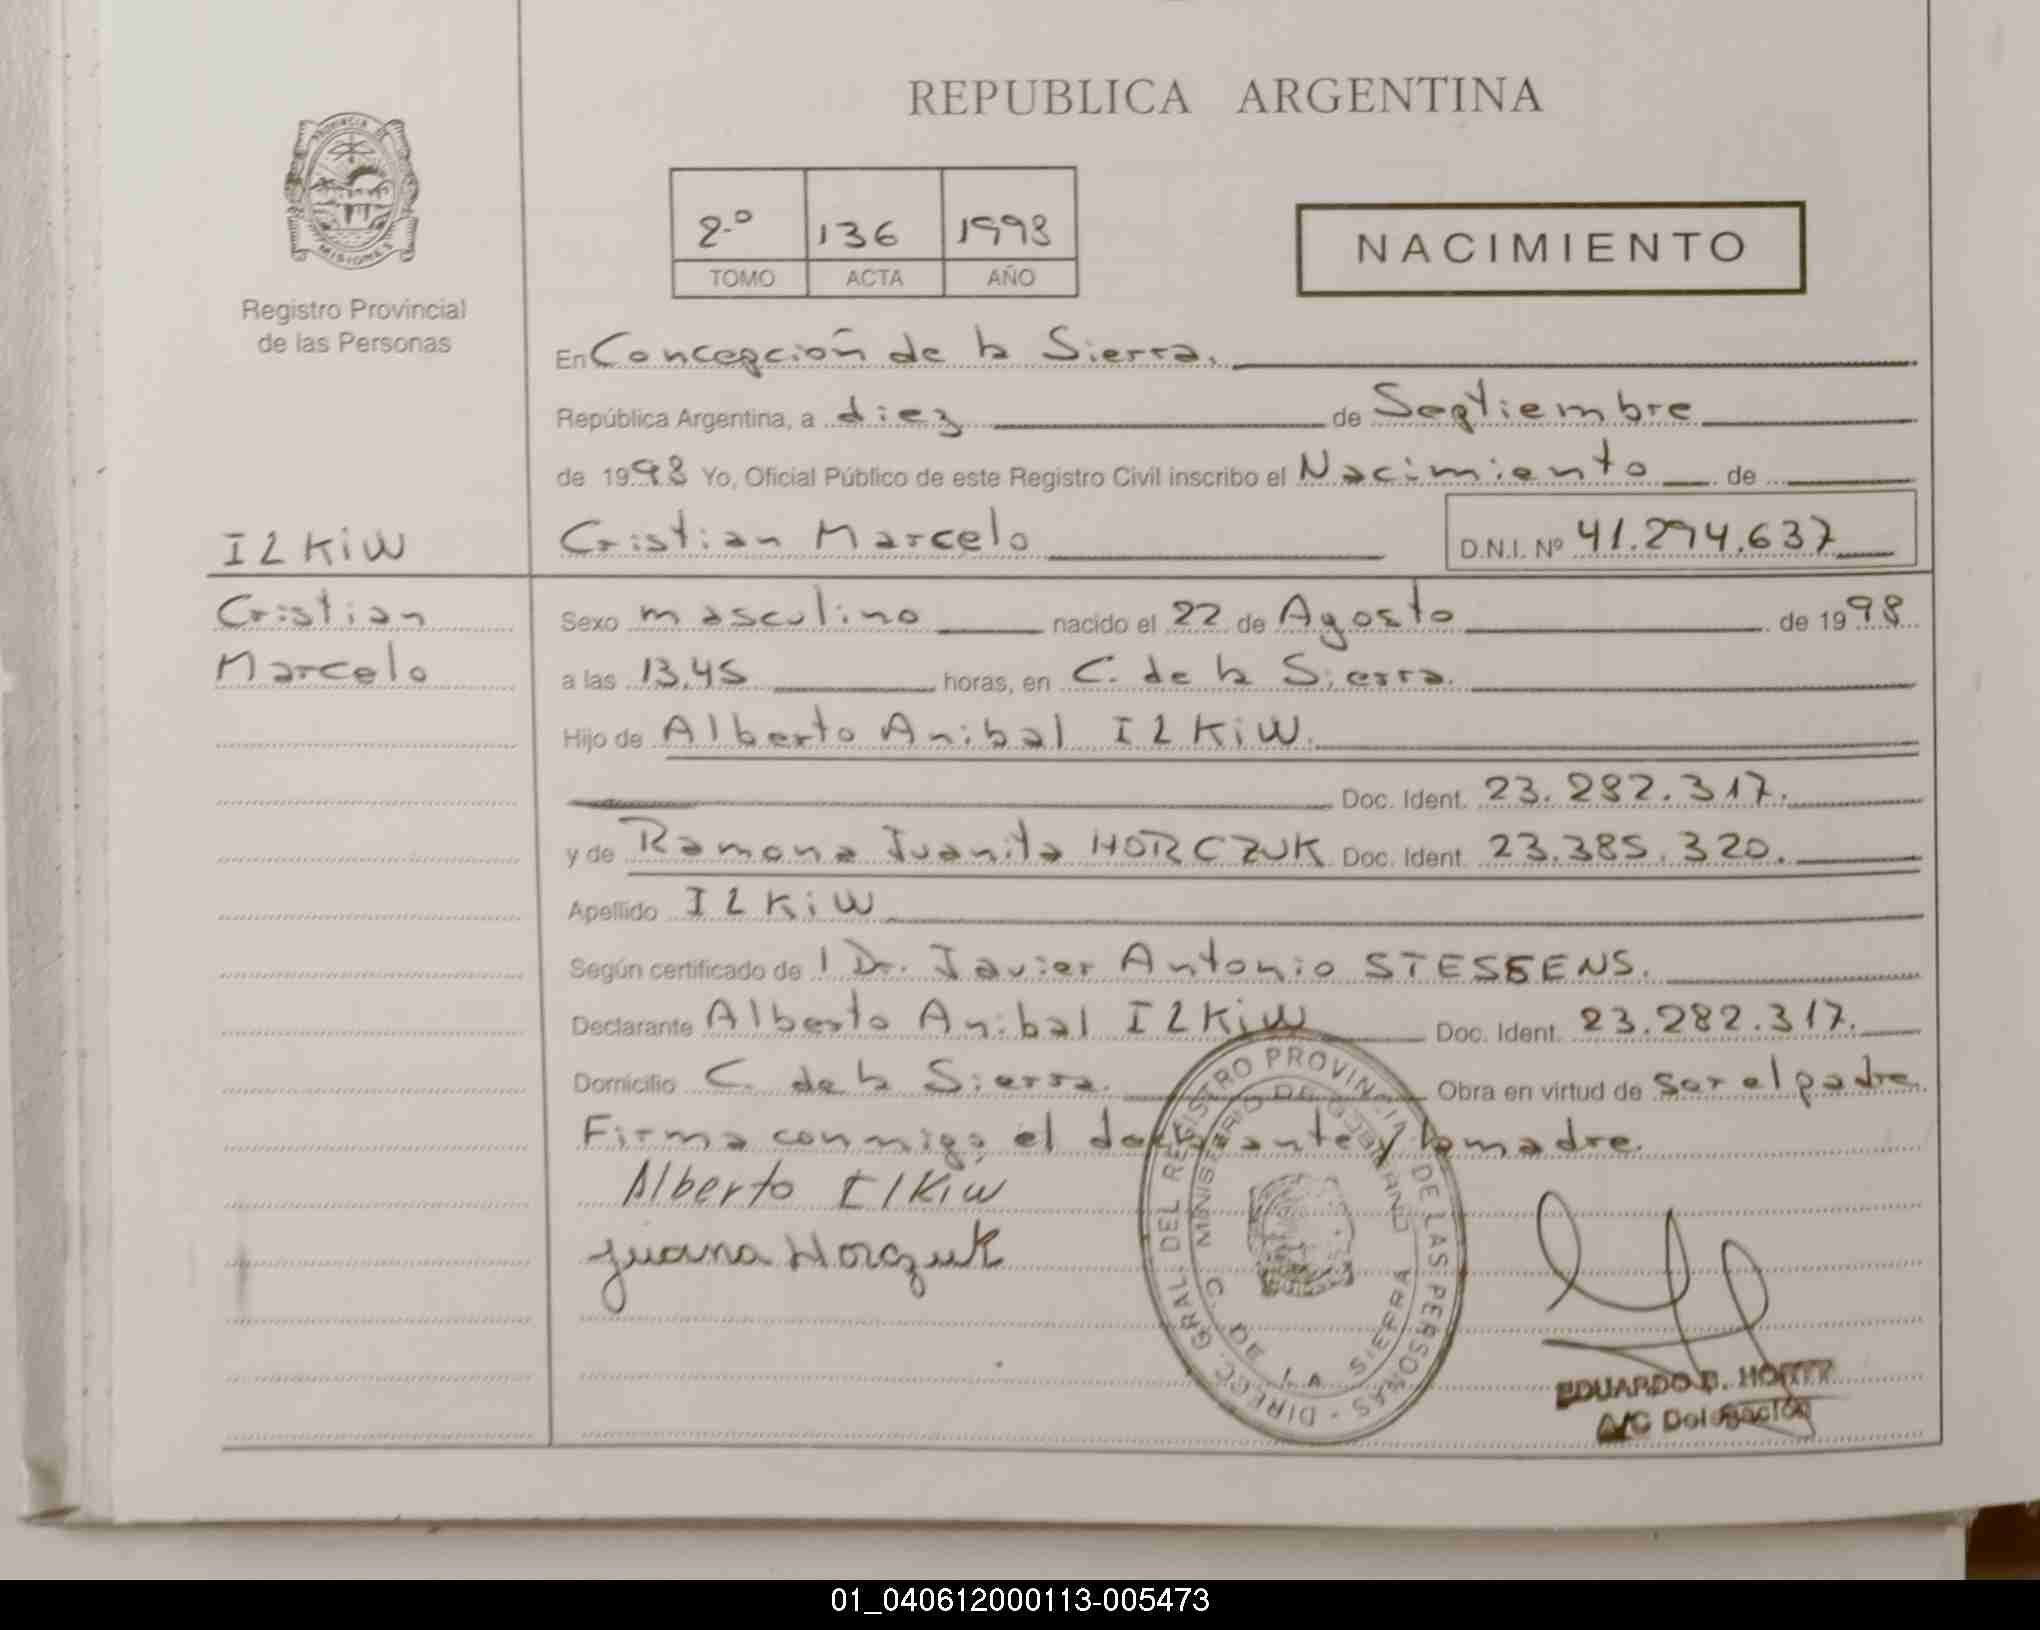 REPUBLICA ARGENTINA
PROVINCIA DE
MISIONES
Registro Provincial
de las Personas
2º 136 1998
TOMO ACTA AÑO
NACIMIENTO
En Concepción de la Sierra.
República Argentina, a diez de Septiembre
de 1998 Yo, Oficial Público de este Registro Civil inscribo el Nacimiento de
ILKiW
Cristian Marcelo D.N.I. Nº 41.294.637
Cristian
Marcelo
Sexo masculino nacido el 22 de Agosto de 1998
a las 13,45 horas, en C. de la Sierra.
Hijo de Alberto Anibal ILKiW.
Doc. Ident. 23.282.317.
y de Ramona Juanita HORCZUK Doc. Ident. 23.385.320.
Apellido ILKiW
Según certificado de l Dr. Javier Antonio STESSENS.
Declarante Alberto Anibal ILKiW Doc. Ident. 23.282.317.
Domicilio C. de la Sierra. Obra en virtud de ser el padre
Firma conmigo el declarante y la madre.
Alberto ILKiW
Juana Horczuk
DIRECC. GRAL. DEL REGISTRO PROVINCIAL DE LAS PERSONAS -
MINISTERIO DE GOBIERNO
C. DE LA SIERRA
EDUARDO
A/C Delegación
01_040612000113-005473